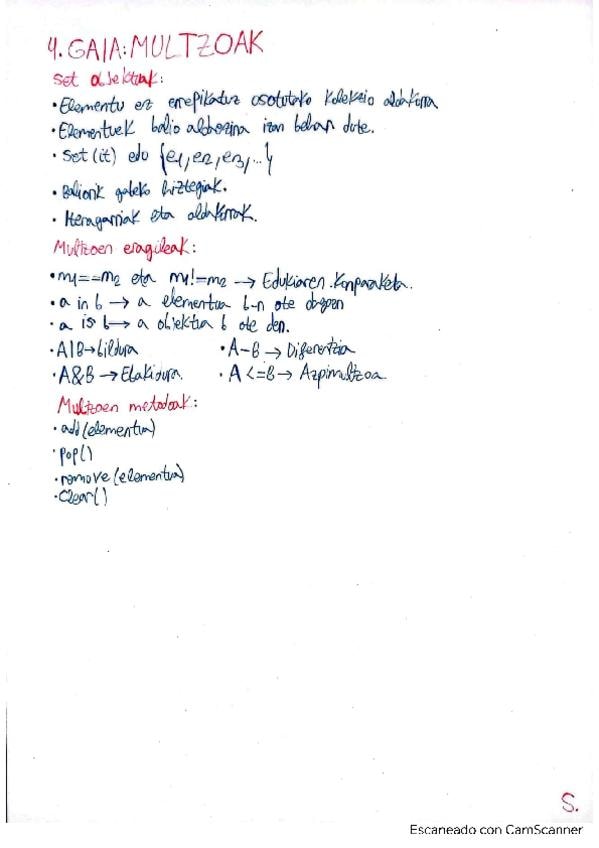 4. GAIA: MULTZOAK
Set objektuak:
• Elementu ez errepikatuz osotutako kolekzio aldakorra
• Elementuek balio aldaezina izan behar dute.
• Set(it) edo {e1, e2, e3, ...}
• Baliorik gabeko hiztegiak.
• Iteragarriak eta aldakorrak.
Multzoen eragileak:
• m1==m2 eta m1!=m2 → Edukiaren Konparaketa.
• a in b → a elementua b-n ote dagoen
• a is b → a objektua b ote den.
• A|B → bildura • A-B → Diferentzia
• A&B → Ebakidura. • A<=B → Azpimultzoa.
Multzoen metodoak:
• add(elementua)
• pop()
• remove(elementua)
• clear()
S.
Escaneado con CamScanner